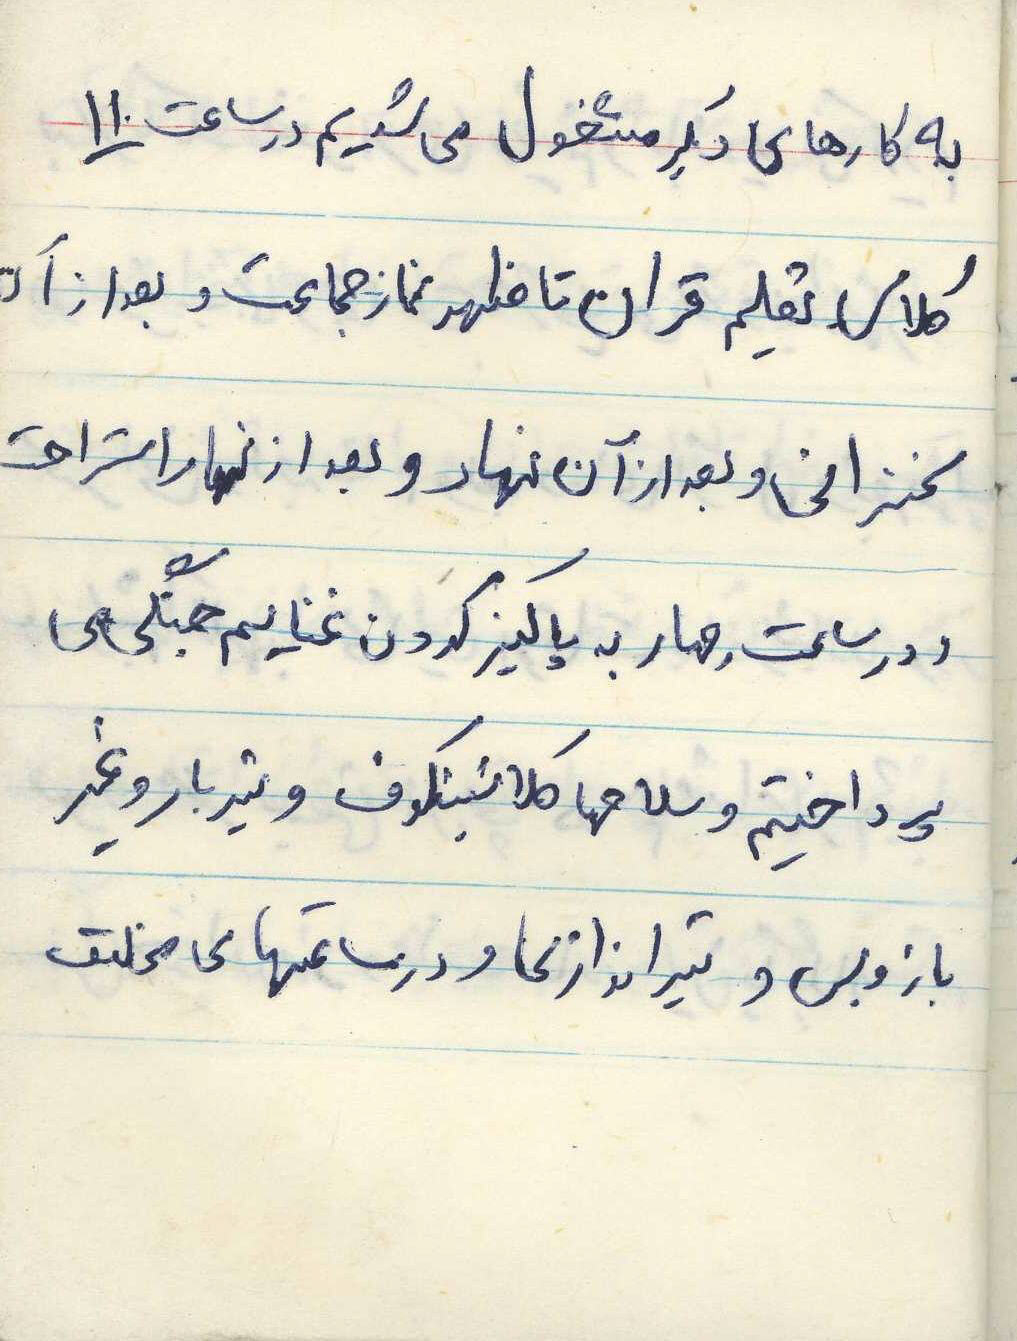 به کارهای دیگر مشغول می شدیم در ساعت ۱۱
کلاس تعلیم قران تا ظهر نماز جماعت و بعد از آن
سخنرانی و بعد از آن نهار و بعد از نهار استراحت
و در ساعت چهار به پاکیز کردن غنایم جنگی می
پرداختیم و سلاحها کلاشینکوف و تیر بار و غیر
باز و بس و تیراندازی و در ساعتهای مختلف